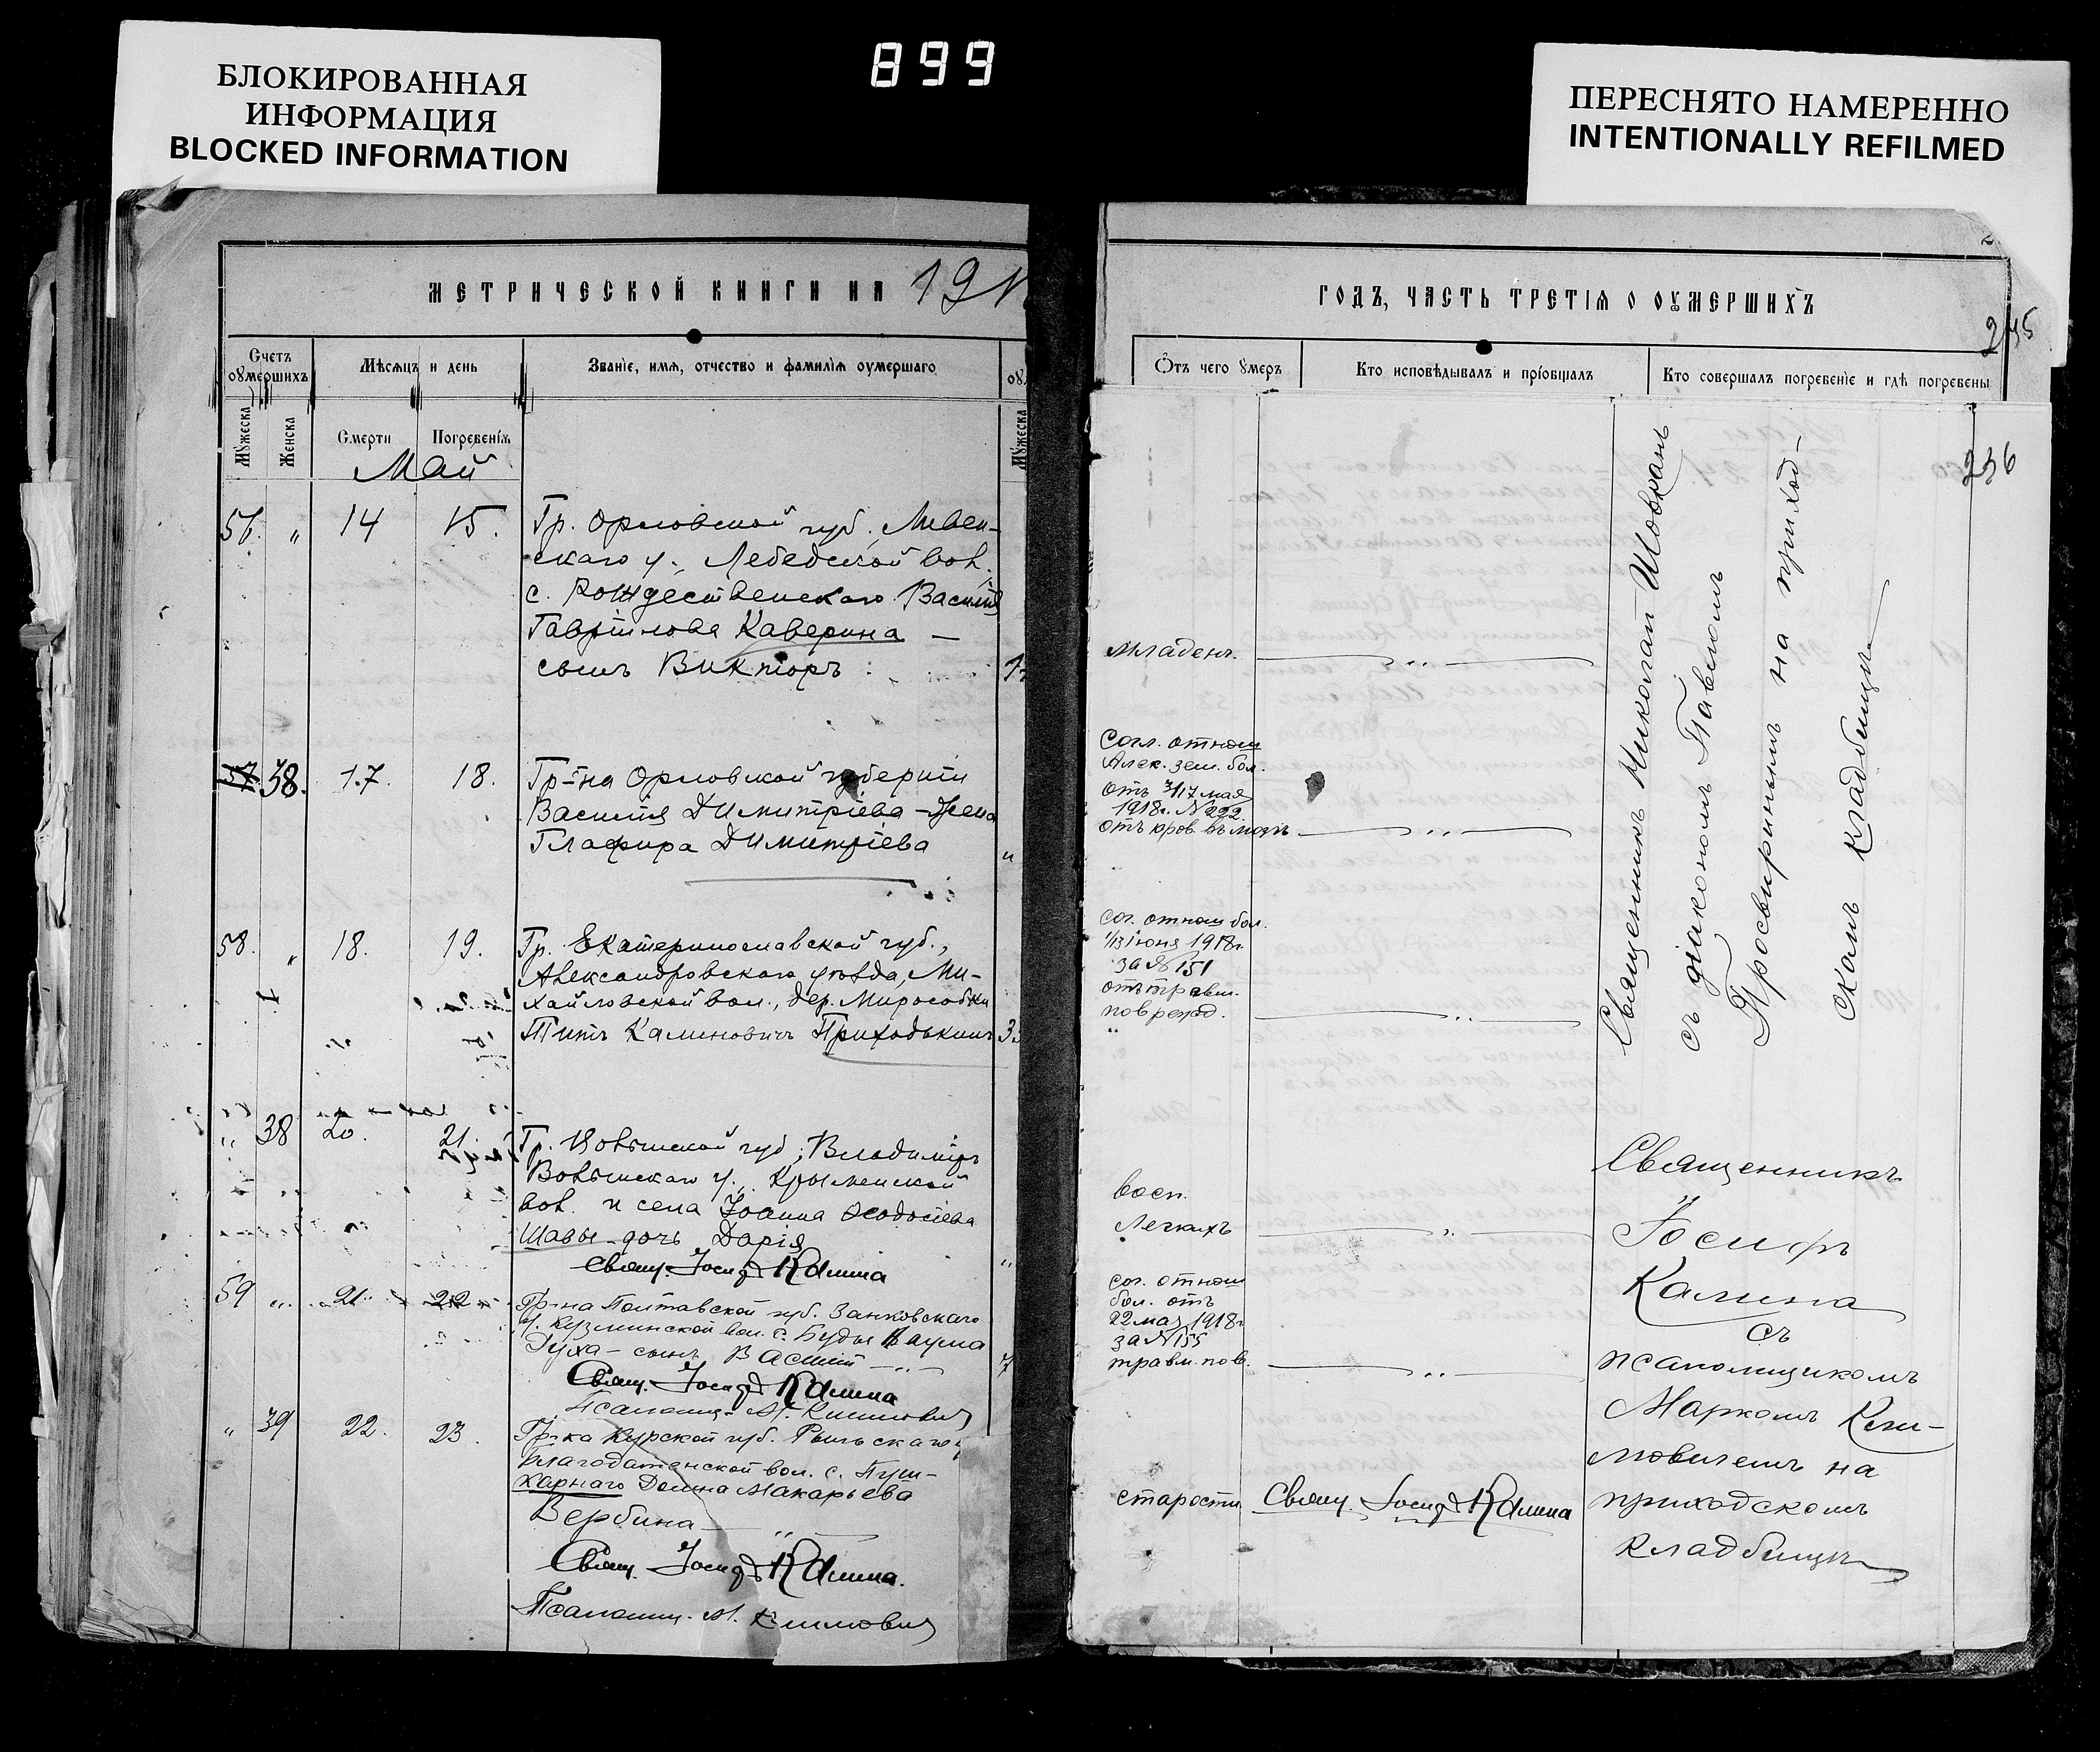 БЛОКИРОВАННАЯ
ИНФОРМАЦИЯ
BLOCKED INFORMATION
899
ПЕРЕСНЯТО НАМЕРЕННО
INTENTIONALLY REFILMED
МЕТРИЧЕСКОЙ КНИГИ НА 191
Счетъ оумершихъ
Мѣсяцъ и день
Званіе, имя, отчество и фамилія оумершаго
Мужеска
Женска
Смерти
Погребенія
Мужеска
Май
56. „ 14 15. Гр. Орловской губ., Ливен-
скаго у., Лебедской вол.
с. Рождественскаго Василія
Гаврилова Каверина —
сынъ Викторъ
57 38. 17. 18. Гр-на Орловской губерніи
Василія Димитріева - жена
Глафира Димитріева „
58. „ 18. 19. Гр. Екатеринославской губ.,
Александровскаго уѣзда, Ми-
хайловской вол., дер.
Титъ Приходькинъ
„ 38 20. 21. Гр. Волынской губ., Владиміръ
Волынскаго у.,
вол. и села Іоанна Ѳеодосіева
Шавы - дочь Дарія
Свящ. Іосифъ Калина „
59 „ 21. 22. Гр-на Полтавской губ.
у. вол. с. Буды Наума
Духа - сынъ Василій 7
Свящ. Іосифъ Калина
Псаломщ. М. Климович
„ 39 22. 23. Гр-ка Курской губ. Рыльскаго у.
Благодатенской вол. с. Пуш-
карнаго Домна Макарьева
Вербина „
Свящ. Іосифъ Калина.
Псаломщ. М. Климович
ГОДЪ, ЧАСТЬ ТРЕТІЯ О ОУМЕРШИХЪ
Ѿтъ чего умеръ
Кто исповѣдывалъ и пріобщалъ
Кто совершалъ погребеніе и гдѣ погребены
236
младен. „
Согл. отнош
Алек. зем. бол.
отъ 4/17 мая
1918г. № 222.
отъ кров. въ мозгъ „
Сог. отнош бол.
іюня 1918г.
за № 151
отъ травм.
поврежд. „
Священникъ Николай
съ діакономъ Павломъ
Просвирнинымъ на приход-
скомъ кладбищѣ
восп.
легкихъ „
сог. отнош
бол. отъ
22 мая 1918г
за № 155
травм. пов. „
старости Свящ. Іосифъ Калина
Священникъ
Іосифъ
Калина
съ
псаломщикомъ
Маркомъ Кли-
мовичемъ на
приходскомъ
кладбищѣ